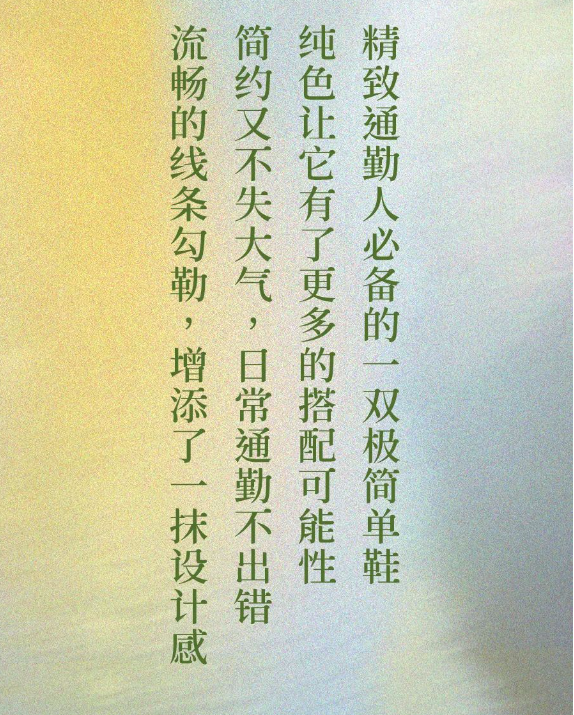 精致通勤人必备的一双极简单鞋
纯色让它有了更多的搭配可能性
简约又不失大气，日常通勤不出错
流畅的线条勾勒，增添了一抹设计感